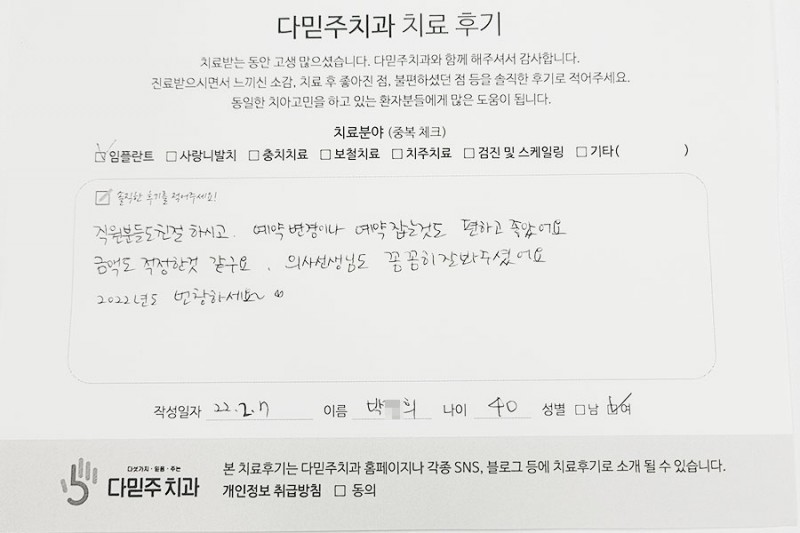 다믿주치과 치료 후기
치료받는 동안 고생 많으셨습니다. 다믿주치과와 함께 해주셔서 감사합니다.
진료받으시면서 느끼신 소감, 치료 후 좋아진 점, 불편하셨던 점 등을 솔직한 후기로 적어주세요.
동일한 치아고민을 하고 있는 환자분들에게 많은 도움이 됩니다.
치료분야 (중복 체크)
☑임플란트 □사랑니발치 □충치치료 □보철치료 □치주치료 □검진 및 스케일링 □기타( )
솔직한 후기를 적어주세요!
직원분들도친절 하시고. 예약변경이나 예약잡는것도 편하고 좋았어요
금액도 적정한것 같구요. 의사선생님도 꼼꼼히잘봐주셨어요
2022년도 번창하세요~
작성일자 22.2.7 이름 박 희 나이 40 성별 □남 ☑여
다섯가지·믿음·주는
다믿주치과
본 치료후기는 다믿주치과 홈페이지나 각종 SNS, 블로그 등에 치료후기로 소개 될 수 있습니다.
개인정보 취급방침 □ 동의